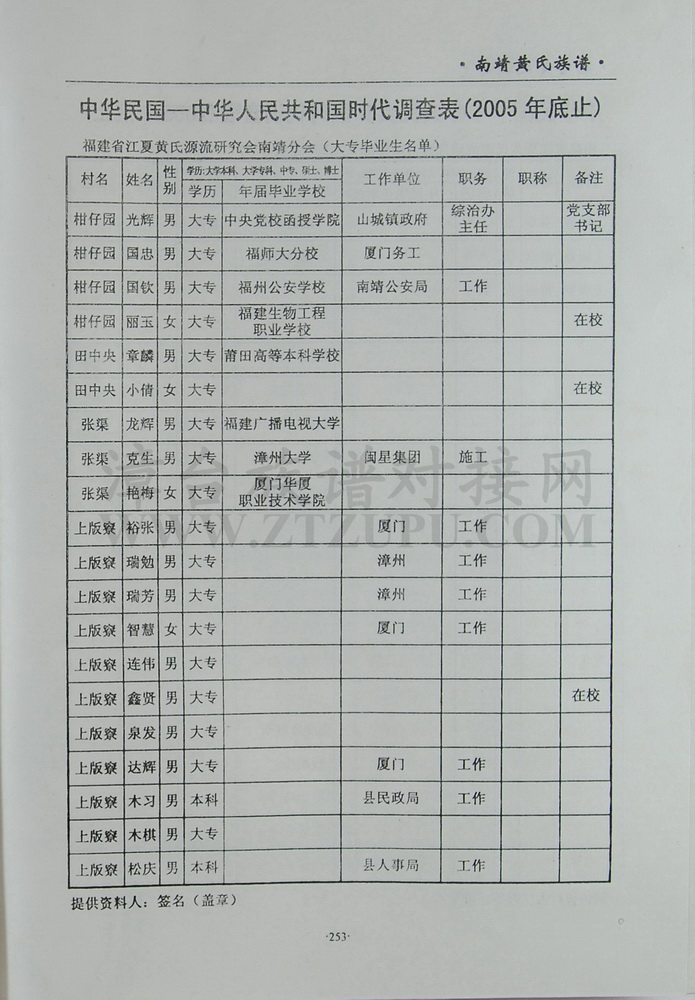 ·南靖黄氏族谱·
中华民国—中华人民共和国时代调查表(2005年底止)
福建省江夏黄氏源流研究会南靖分会（大专毕业生名单）
村名 姓名 性别 学历:大学本科、大学专科、中专、硕士、博士 工作单位 职务 职称 备注
学历 年届毕业学校
柑仔园 光辉 男 大专 中央党校函授学院 山城镇政府 综治办主任 党支部书记
柑仔园 国忠 男 大专 福师大分校 厦门务工
柑仔园 国钦 男 大专 福州公安学校 南靖公安局 工作
柑仔园 丽玉 女 大专 福建生物工程职业学校 在校
田中央 章麟 男 大专 莆田高等本科学校
田中央 小倩 女 大专 在校
张渠 龙辉 男 大专 福建广播电视大学
张渠 克生 男 大专 漳州大学 闽星集团 施工
张渠 艳梅 女 大专 厦门华厦职业技术学院
上版寮 裕张 男 大专 厦门 工作
上版寮 瑞勉 男 大专 漳州 工作
上版寮 瑞芳 男 大专 漳州 工作
上版寮 智慧 女 大专 厦门 工作
上版寮 连伟 男 大专
上版寮 鑫贤 男 大专 在校
上版寮 泉发 男 大专
上版寮 达辉 男 大专 厦门 工作
上版寮 木习 男 本科 县民政局 工作
上版寮 木棋 男 大专
上版寮 松庆 男 本科 县人事局 工作
提供资料人：签名（盖章）
·253·
漳台族谱对接网
WWW.ZTZUPU.COM